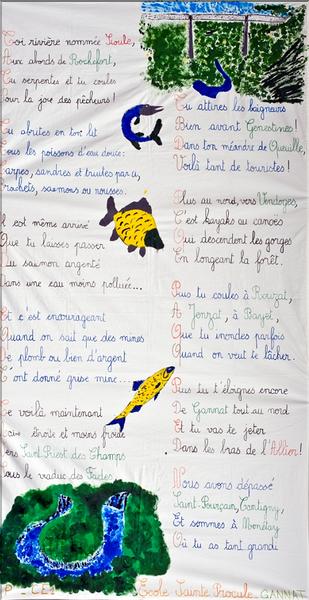 Toi rivière nommée Sioule,
Aux abords de Rochefort,
Tu serpentes et tu coules
Pour la joie des pêcheurs !
Tu abrites en ton lit
Tous les poissons d'eau douce :
Carpes, sandres et truites par ci,
Brochets, saumons ou rousses.
Il est même arrivé
Que tu laisses passer
Du saumon argenté
Dans une eau moins polluée...
Et c'est encourageant
Quand on sait que des mines
De plomb ou bien d'argent
T'ont donné grise mine...
Te voilà maintenant
étroite et moins froide
Vers Saint Priest des Champs
Sous le viaduc des Fades
P - CE1
Tu attires les baigneurs
Bien avant Genestines !
Dans ton méandre de Queuille,
Voilà tant de touristes !
Plus au nord, vers Vendoges,
C'est kayaks ou canoës
Qui descendent les gorges
En longeant la forêt.
Puis tu coules à Rouzat,
A Jenzat, à Bayet,
Que tu inondes parfois
Quand on veut te lâcher.
Puis tu t'éloignes encore
De Gannat tout au nord
Et tu vas te jeter
Dans les bras de l'Allier !
Nous avons dépassé
Saint-Pourçain, Contigny,
Et sommes à Monétay
Où tu as tant grandi
Ecole Sainte Procule - GANNAT